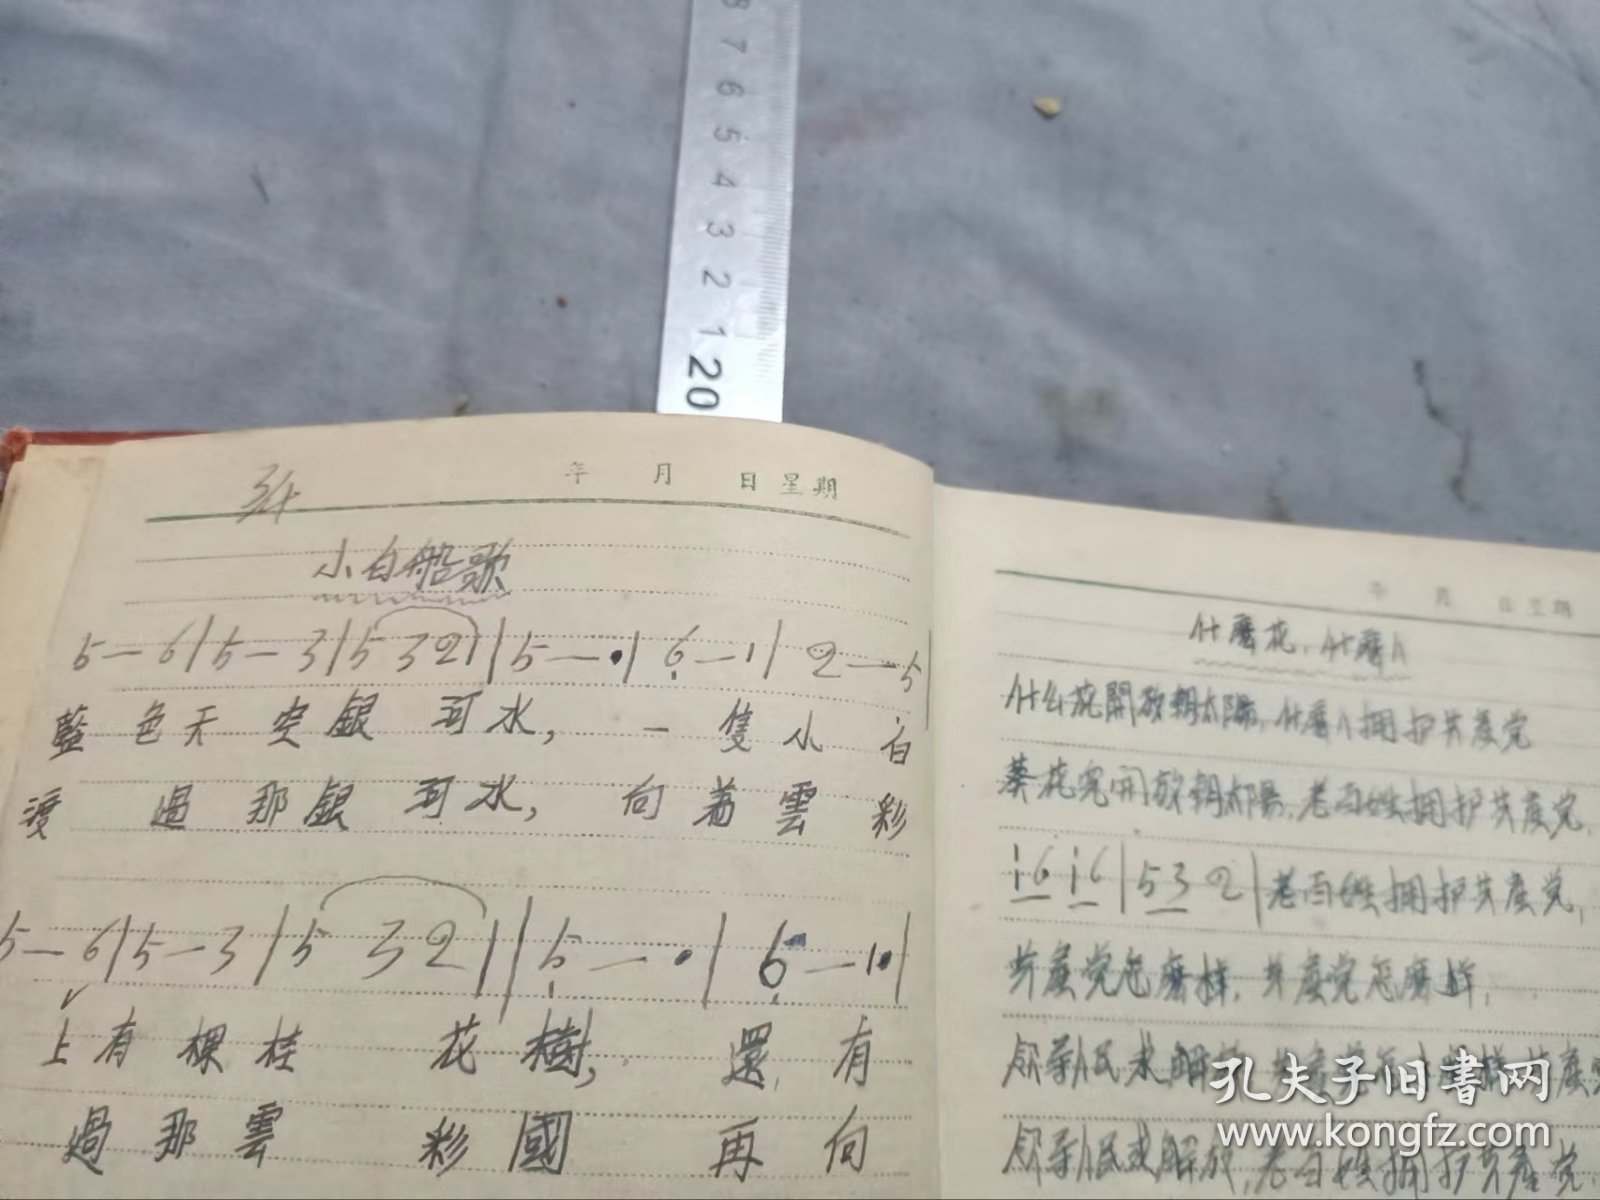 8 7 6 5 4 3 2 1 20
年 月 日 星期
3/4
小白船歌
5—6|5—3|5 32||5—•|6—1|2—5|
藍色天空銀河水，一隻小白
渡過那銀河水，向着雲彩
5—6|5—3|5 32||5—•|6—1•|
上有棵桂花樹，還有
過那雲彩國 再向
年 月 日 星期
什麽花，什麽人
什么花開放朝太陽，什麽人拥护共産党
葵花完開放朝太陽，老百姓拥护共産党，
i6 i6|53 2|老百姓拥护共産党，
共産党怎麽样，共産党怎麽样，
领导人民求解放
领导人民求解放，老百姓拥护共産党
孔夫子旧書网
www.kongfz.com